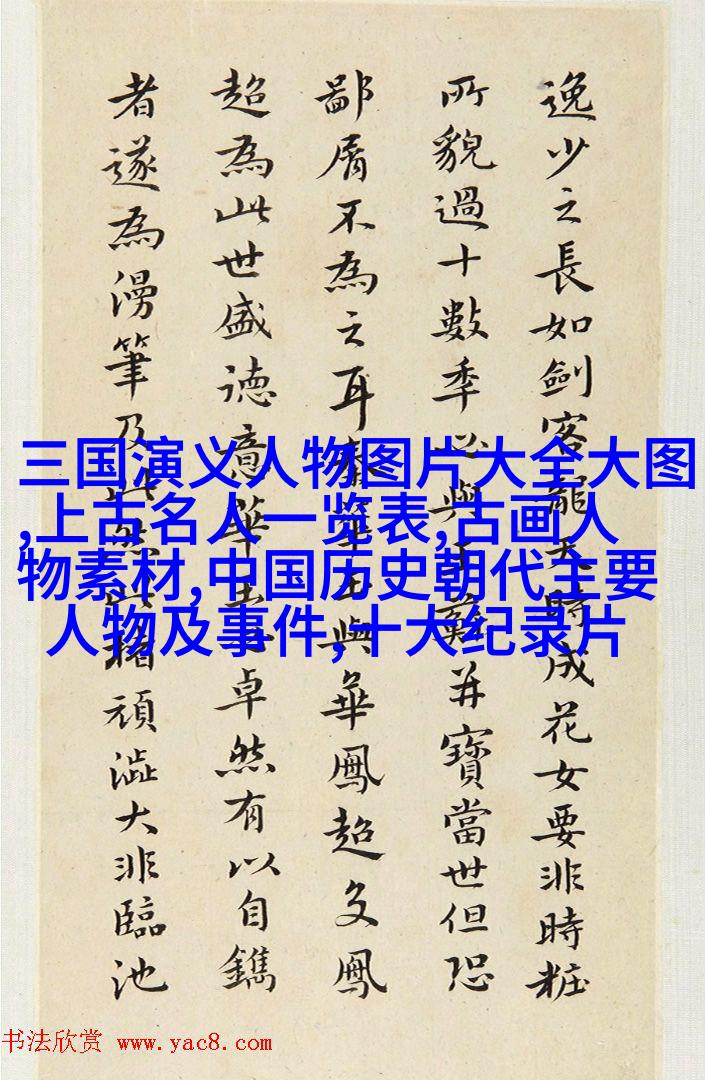 逸少之長如劍客龍天時成花女要非時粧
所貌過十數季必與王蘇并寶當世但恐
鄙屑不為之耳與華鳳超文鳳
超為此世盛德意華卓然有以自鐫
者遂為漫筆及此然以楮頑澁大非臨池
三国演义人物图片大全大图
,上古名人一览表,古画人
物素材,中国历史朝代主要
人物及事件,十大纪录片
书法欣赏 www.yac8.com